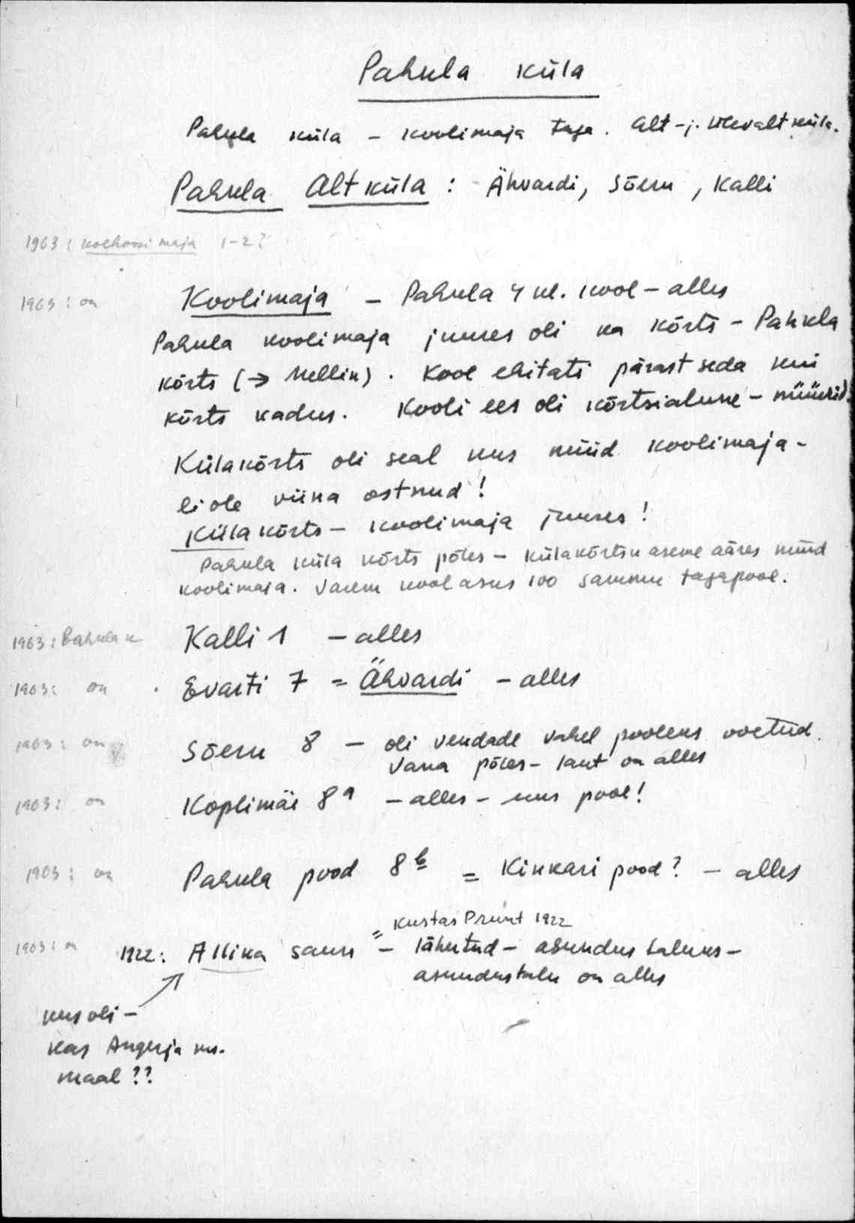 Pahula küla
Pahula küla – koolimaja taga. Alt- j. Ülevalt küla.
Pahula Altküla : Ähvardi, Sõeru, Kalli
1903 : maja 1-2?
1903 : on Koolimaja – Pahula 4 kl. kool – alles
Pahula koolimaja juures oli ka kõrts – Pahula
kõrts (→ Mellin). Kool ehitati pärast seda kui
kõrts kadus. Kooli ees oli kõrtsialune – müürid.
Külakõrts oli seal kus nüüd koolimaja –
ei ole viina ostnud!
Külakõrts – koolimaja juures!
Pahula küla kõrts põles – külakõrtsu aseme ääres nüüd
koolimaja. Varem kool asus 100 sammu tagapool.
1903 : Pahula k Kalli 1 – alles
1903 : on Evarti 7 = Ähvardi – alles
1903 : on Sõeru 8 – oli vendade vahel pooleks võetud.
Vana põles – laut on alles
1903 : on Koplimäe 8a – alles – uus pool!
1903 : on Pahula pood 8b = Kinkari pood? – alles
= Kustas Pruunt 1922
1903 : on 1922: Allika saun – lähutud – asundus talunes –
asundustalu on alles
kus oli –
kas Angerja km.
maal??